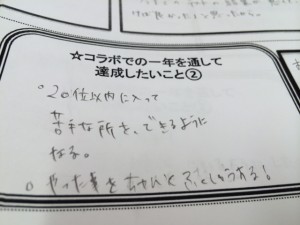 ☆コラボでの一年を通して
達成したいこと②
○20位以内に入って
苦手な所を、できるように
なる。
○やった事をちゃんとふくしゅうする!